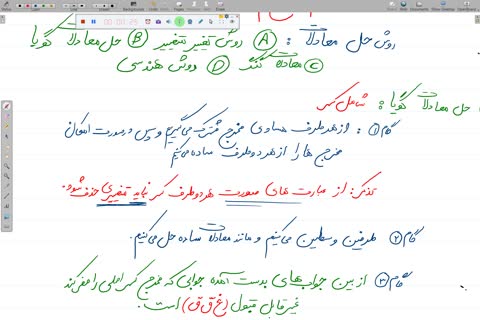 روش حل معادلات : A روش تغییر متغییر B حل معادلات گویا
C معادلات گنگ D روش هندسی
حل معادلات گویا : شامل کسر
گام ۱ : از هر طرف مساوی مخرج مشترک می‌گیریم و سپس در صورت امکان
مخرج ها را از هر دو طرف ساده می‌کنیم
تذکر: از عبارت های صورت هر دو طرف کسر نباید متغییری حذف شود.
گام ۲ طرفین وسطین می‌کنیم و مانند معادلات ساده حل می‌کنیم.
گام ۳ از بین جواب‌های بدست آمده جوابی که مخرج کسر اصلی را صفر کند
غیر قابل قبول (غ ق ق) است.